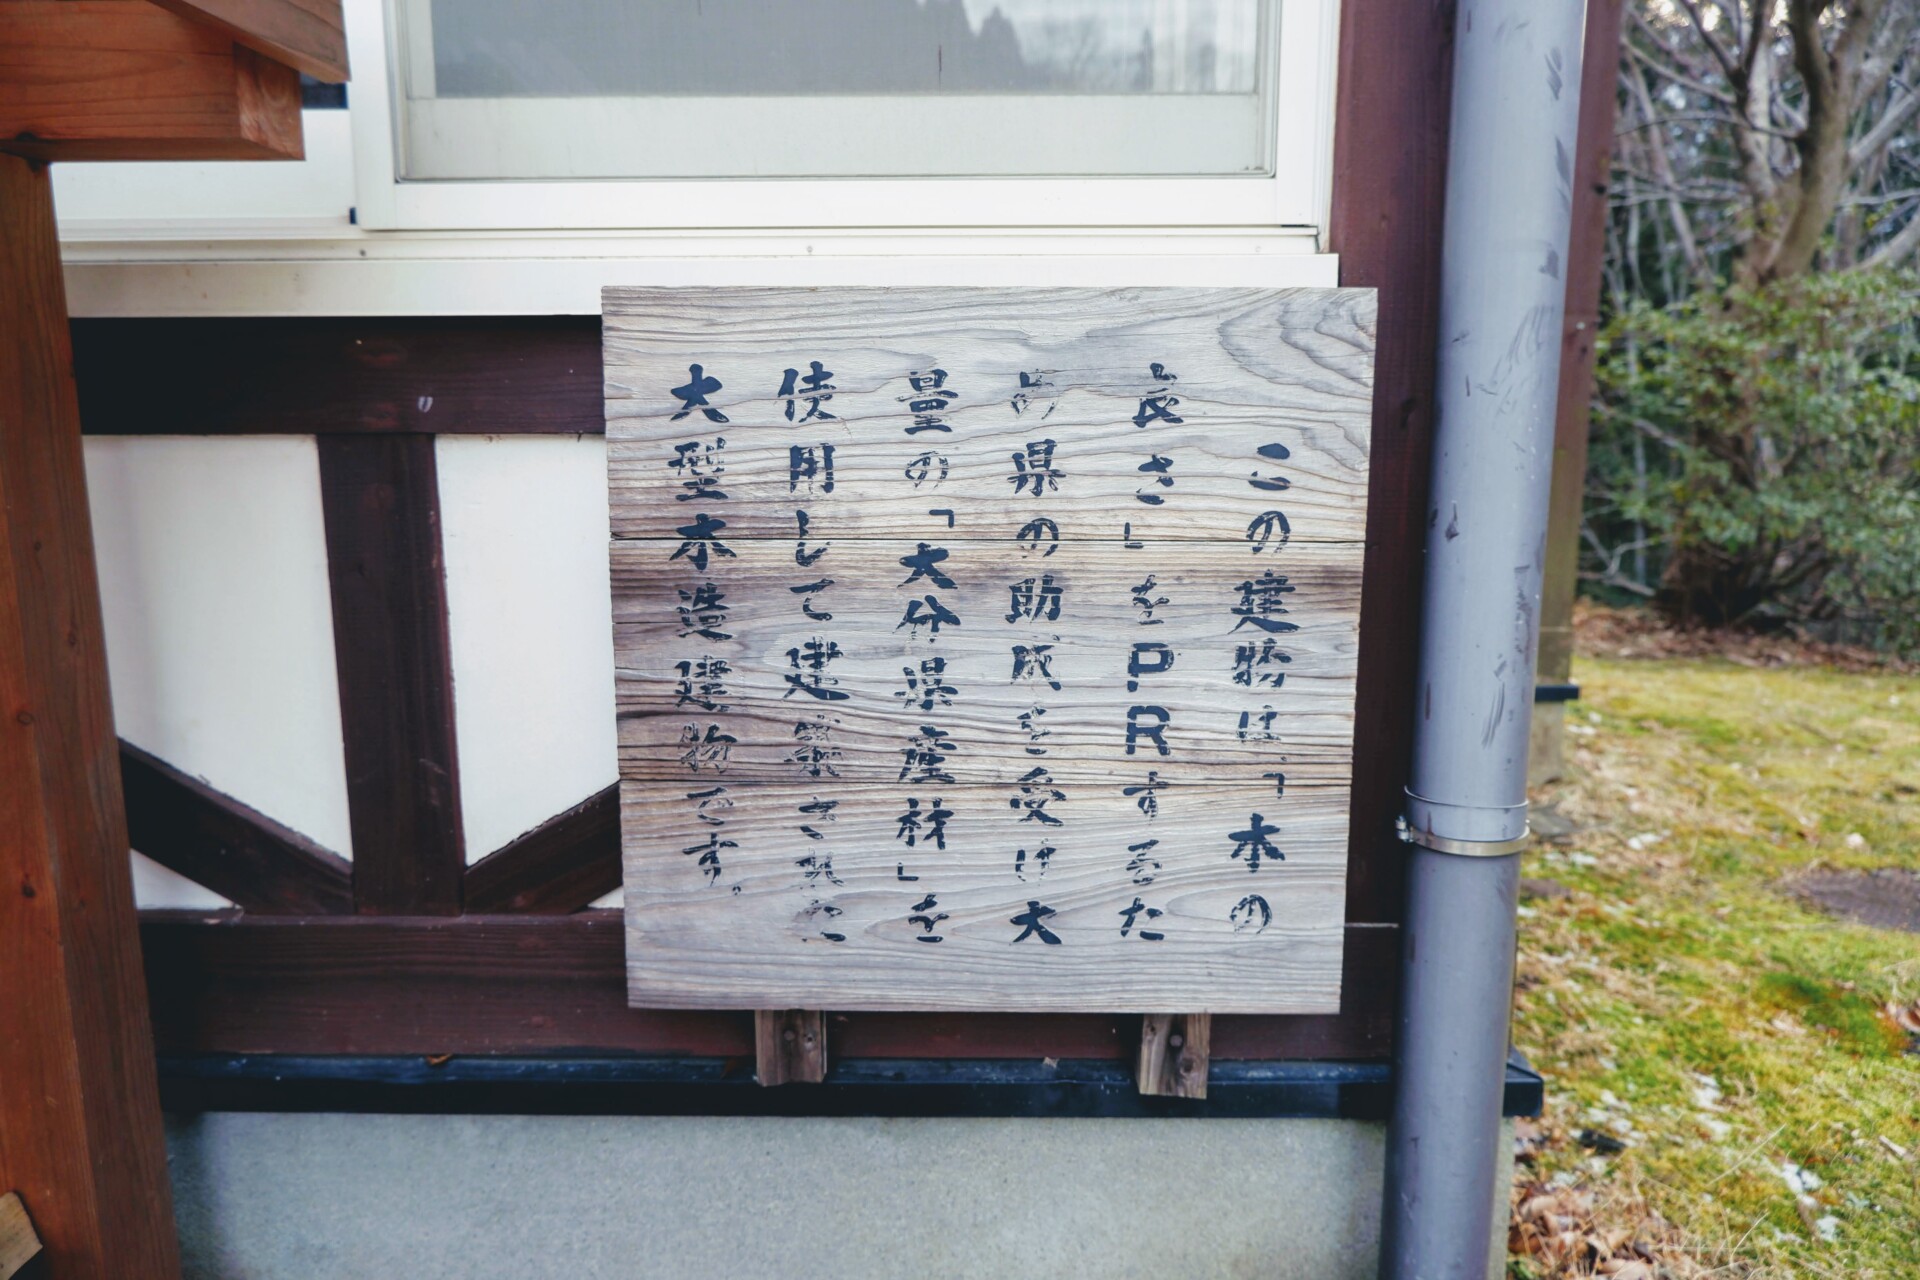 この建物は、「木の
良さ」をPRするた
め県の助成を受け大
量の「大分県産材」を
使用して建築された
大型木造建物です。